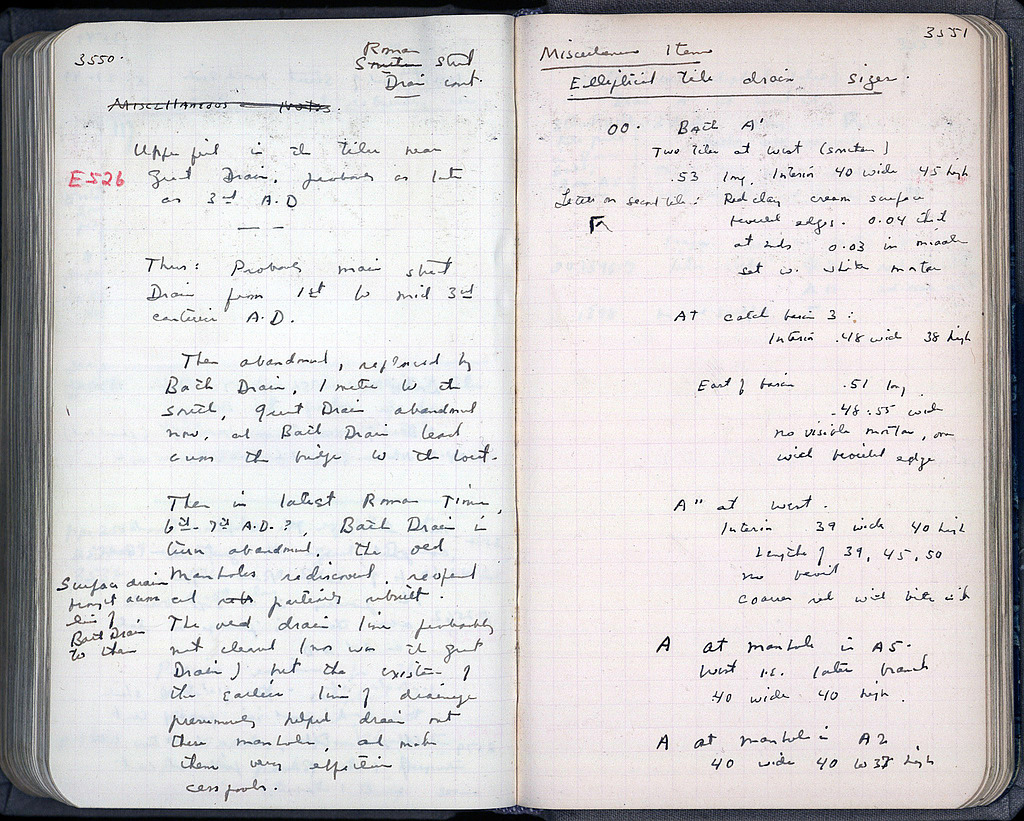 3550.
Roman
Street
Drain cont.
Miscellaneous Notes.
Upper fill in the tiles near
E526
Great Drain, probably as late
as 3rd A.D
Thus: Probably main street
Drain from 1st to mid 3rd
centuries A.D.
Then abandoned, replaced by
Bath Drain, 1 metre to the
south, Great Drain abandoned
now, and Bath Drain lead
across the bridge to the West.
Then in latest Roman Times,
6th-7th A.D.? Bath Drain in
turn abandoned. The old
Manholes rediscovered, reopened
and partially rebuilt.
Surface drain
across
line of
Bath Drain
to them
The old drain line probably
not cleared (nor was the great
Drain) but the existence of
the earlier line of drainage
presumably helped drain out
these manholes, and make
them very effective
cesspools.
3551
Miscellaneous Items
Elliptical tile drain sizes.
00. Bath A'
Two tiles at west (smitten)
.53 long. Interior 40 wide 45 high
Letter on second tile: Red clay cream surface
bevelled edges. 0.04 thick
at ends 0.03 in middle
set w. white mortar
At catch basin 3:
Interior .48 wide 38 high
East of basin .51 long
.48-.55 wide
no visible mortar, one
with bevelled edge
A" at west.
Interior 39 wide 40 high
Lengths of 39, 45, 50
no bevel
coarser red with
A at manhole in A5.
West i.e. later branch
.40 wide 40 high.
A at manhole in A2
40 wide 40 to 37 high